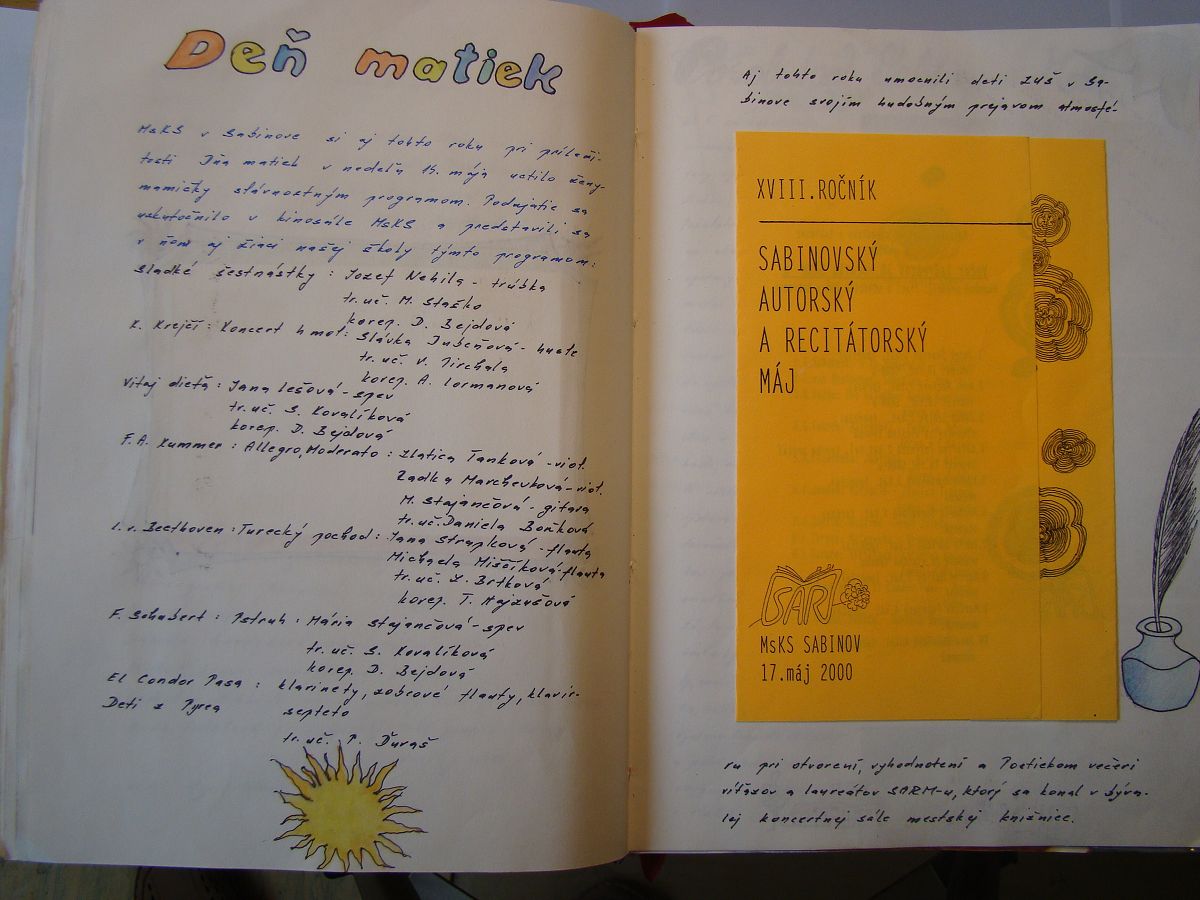 Deň matiek
MsKS v Sabinove si aj tohto roku pri príleži-
tosti Dňa matiek v nedeľu 14. mája uctilo ženy-
mamičky slávnostným programom. Podujatie sa
uskutočnilo v kinosále MsKS a predstavili sa
v ňom aj žiaci našej školy týmto programom:
Sladké šestnástky : Jozef Nehila - trúbka
tr. uč. M. Staško
korep. D. Bejdová
K. Krejčí : Koncert h mol : Slávka - husle
tr. uč. V. Pirchala
korep. A. Lormanová
Vitaj dieťa : Jana Lešová - spev
tr. uč. S. Kovalíková
korep. D. Bejdová
F. A. Kummer : Allegro, Moderato : Zlatica Tanková - viol.
Radka Marchevková - viol.
M. Stajančová - gitara
tr. uč. Daniela Boňková
L. v. Beethoven : Turecký pochod : Jana Strapková - flauta
Michaela Miščíková - flauta
tr. uč. Ľ. Brtková
korep. T. Hajzušová
F. Schubert : Pstruh : Mária Stajančová - spev
tr. uč. S. Kovalíková
korep. D. Bejdová
El Condor Pasa : klarinety, zobcové flauty, klavír-
Deti z Pyrea septeto
tr. uč. P. Ďuraš
Aj tohto roku umocnili deti ZUŠ v Sa-
binove svojím hudobným prejavom atmosfé-
XVIII. ROČNÍK
SABINOVSKÝ
AUTORSKÝ
A RECITÁTORSKÝ
MÁJ
SARM
MsKS SABINOV
17. máj 2000
ru pri otvorení, vyhodnotení a Poetickom večeri
víťazov a laureátov SARM-u, ktorý sa konal v býva-
lej koncertnej sále mestskej knižnice.